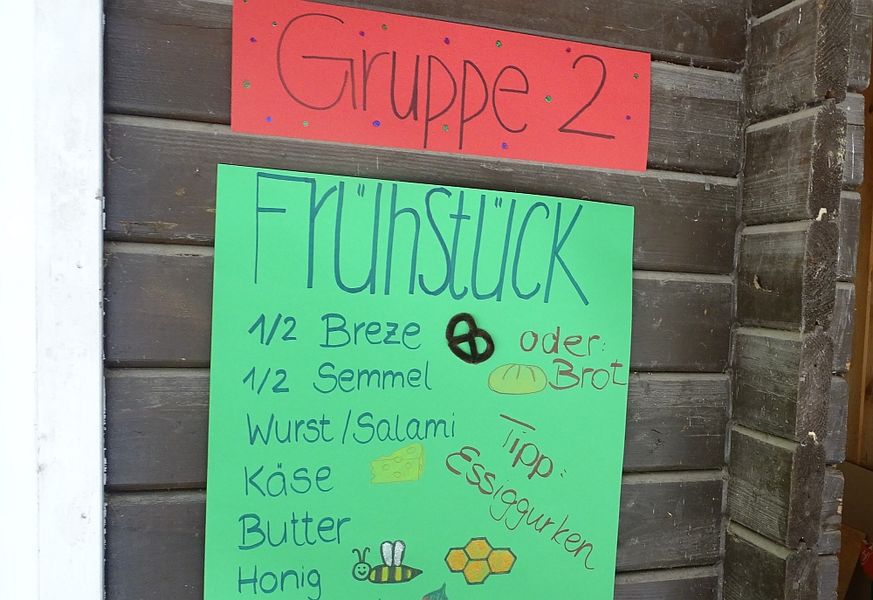 Gruppe 2
Frühstück
1/2 Breze oder:
1/2 Semmel Brot
Wurst/Salami
Tipp:
Essiggurken
Käse
Butter
Honig